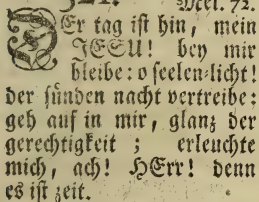 Mel. 72.
DEr tag iſt hin, mein
JESU! bey mir
bleibe: o ſeelen-licht!
der ſünden nacht vertreibe:
geh auf in mir, glanz der
gerechtigkeit; erleuchte
mich, ach! HErr! denn
es iſt zeit.